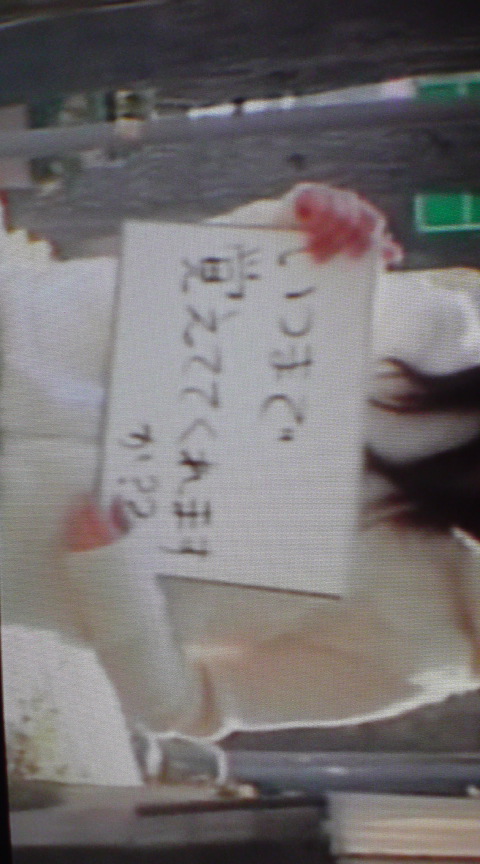 いつまで
覚えててくれます
か??